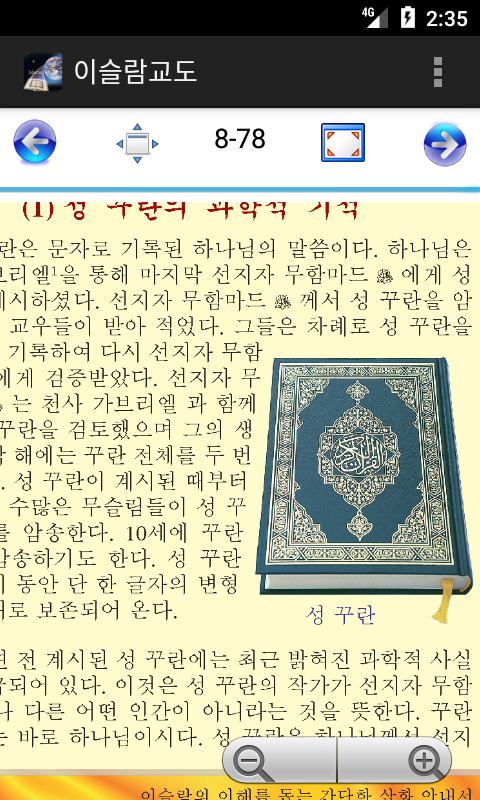 4G 2:35
이슬람교도
8-78
(1) 성 꾸란의 과학적 기적
란은 문자로 기록된 하나님의 말씀이다. 하나님은
브리엘1을 통해 마지막 선지자 무함마드 ﷺ 에게 성
계시하셨다. 선지자 무함마드 ﷺ 께서 성 꾸란을 암
교우들이 받아 적었다. 그들은 차례로 성 꾸란을
기록하여 다시 선지자 무함
에게 검증받았다. 선지자 무
는 천사 가브리엘 과 함께
꾸란을 검토했으며 그의 생
해에는 꾸란 전체를 두 번
. 성 꾸란이 계시된 때부터
수많은 무슬림들이 성 꾸
를 암송한다. 10세에 꾸란
암송하기도 한다. 성 꾸란
동안 단 한 글자의 변형
대로 보존되어 온다.
القرآن الكريم
성 꾸란
전 계시된 성 꾸란에는 최근 밝혀진 과학적 사실
되어 있다. 이것은 성 꾸란의 작가가 선지자 무함
나 다른 어떤 인간이 아니라는 것을 뜻한다. 꾸란
는 바로 하나님이시다. 성 꾸란은 하나님께서 선지
이슬람의 이해를 돕는 간단한 삽화 안내서